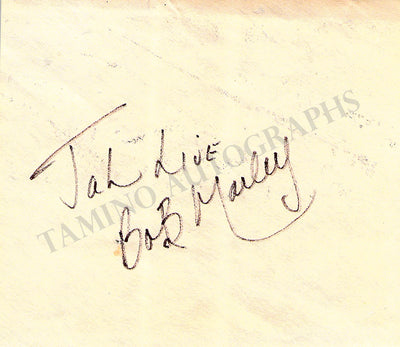 Jah Live
Bob Marley
TAMINO AUTOGRAPHS